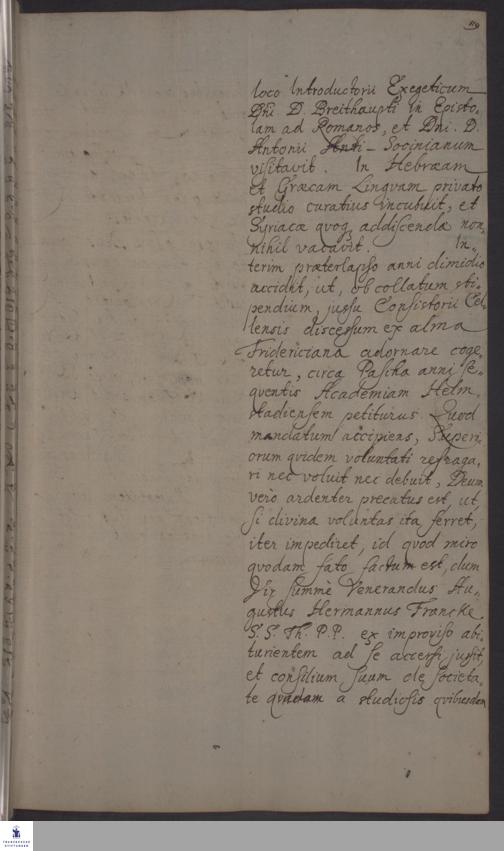 119
loco Introductorii Exegeticum
Dni D. Breithaupti in Episto-
lam ad Romanos, et Dni. D.
Antonii Anti-Socinianum
visitavit. In Hebræam
et Græcam Lingvam privato
studio curatius incubuit, et
Syriacæ qvoq, addiscendæ non,
nihil vacavit. In-
terim præterlapso anni dimidio
accidit, ut, ob collatum sti-
pendium, jussu Consistorii Cel-
lensis discessum ex alma
Fridericiana adornare coge-
retur, circa Pascha anni se-
qventis Academiam Helm-
stadiensem petiturus. Qvod
mandatum accipiens, Superi-
orum qvidem voluntati refraga-
ri nec voluit nec debuit, Deum
vero ardenter precatus est, ut
si divina voluntas ita ferret,
iter impediret, id qvod miro
qvodam fato factum est, dum
Vir summè Venerandus Au-
gustus Hermannus Francke.
S. S. Th. P. P. ex improviso abi-
turientem ad se accersi jussit,
et consilium suum de societa-
te qvadam a studiosis qvibusdam
FRANCKESCHE
STIFTUNGEN